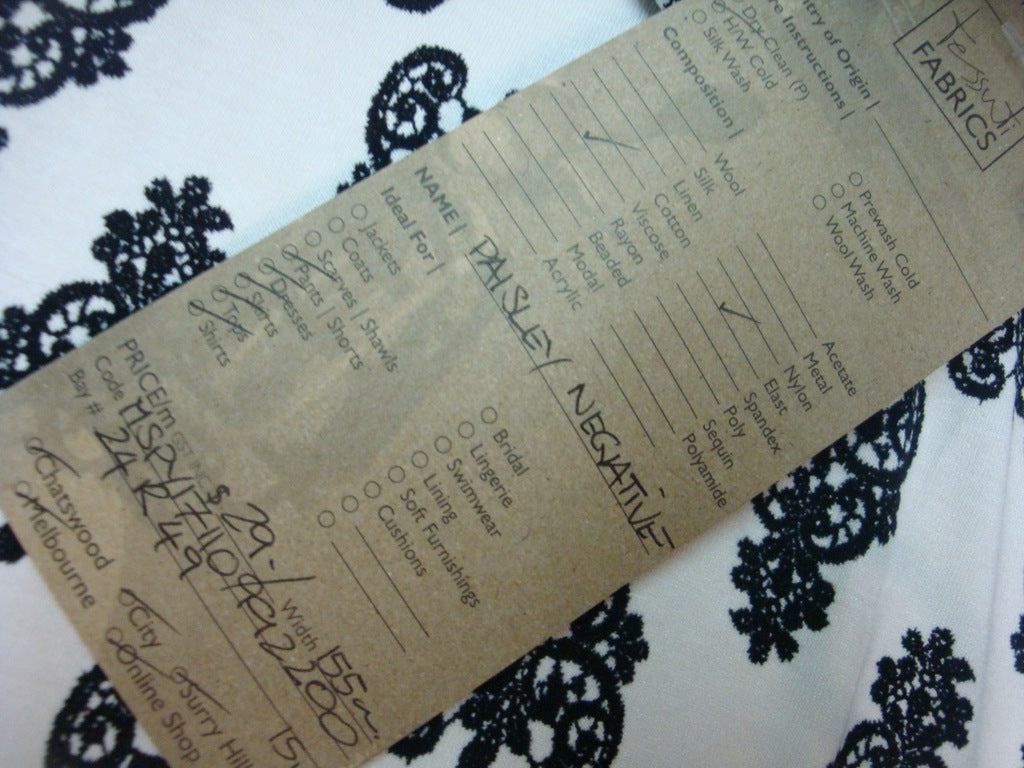 Tessuti
FABRICS
ntry of Origin |
re Instructions |
Dry-Clean (P)
H/W Cold
Silk Wash
Prewash Cold
Machine Wash
Wool Wash
Composition |
Wool
Silk
Linen
Cotton
Viscose
Rayon
Beaded
Modal
Acrylic
Acetate
Metal
Nylon
Elast
Spandex
Poly
Sequin
Polyamide
NAME | PAISLEY NEGATIVE
Ideal For |
Jackets
Coats
Scarves | Shawls
Pants | Shorts
Dresses
Skirts
Tops
Shirts
Bridal
Lingerie
Swimwear
Lining
Soft Furnishings
Cushions
PRICE/m $29.- Width 155
Code
Bay # 24 R 49
Chatswood
Melbourne
City
Online Shop
Surry Hil